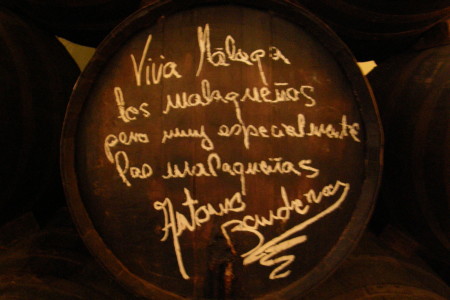 Viva Málaga
los malagueños
pero muy especialmente
las malagueñas
Antonio
Banderas